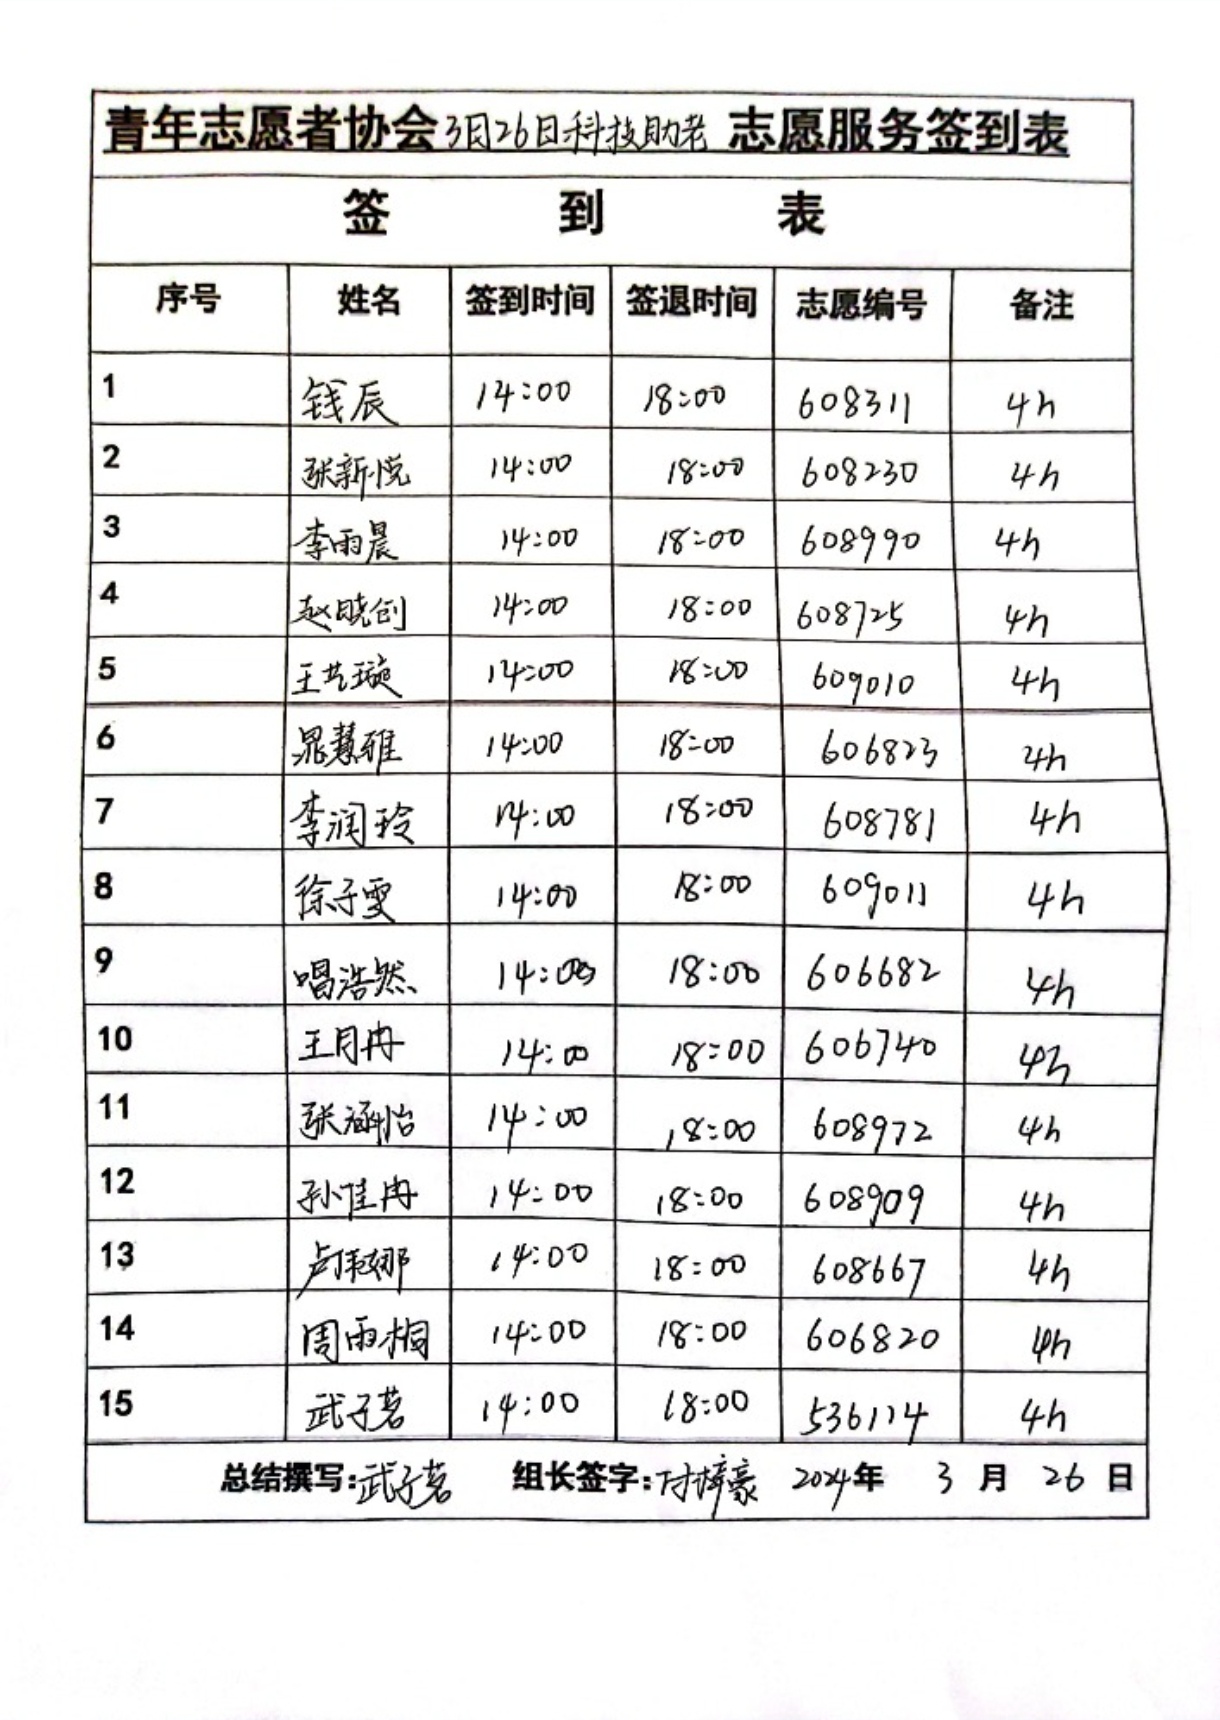 青年志愿者协会3月26日科技助老 志愿服务签到表
签 到 表
序号 姓名 签到时间 签退时间 志愿编号 备注
1 钱辰 14:00 18:00 608311 4h
2 张新悦 14:00 18:00 608230 4h
3 李雨晨 14:00 18:00 608990 4h
4 赵晓创 14:00 18:00 608725 4h
5 王艺璇 14:00 18:00 609010 4h
6 晁慧雅 14:00 18:00 606823 4h
7 李润玲 14:00 18:00 608781 4h
8 徐子雯 14:00 18:00 609011 4h
9 唱浩然 14:00 18:00 606682 4h
10 王月冉 14:00 18:00 606740 4h
11 张涵怡 14:00 18:00 608972 4h
12 孙佳冉 14:00 18:00 608909 4h
13 卢伟娜 14:00 18:00 608667 4h
14 周雨桐 14:00 18:00 606820 4h
15 武子茗 14:00 18:00 536114 4h
总结撰写:武子茗 组长签字:付梓豪 2024年 3 月 26 日